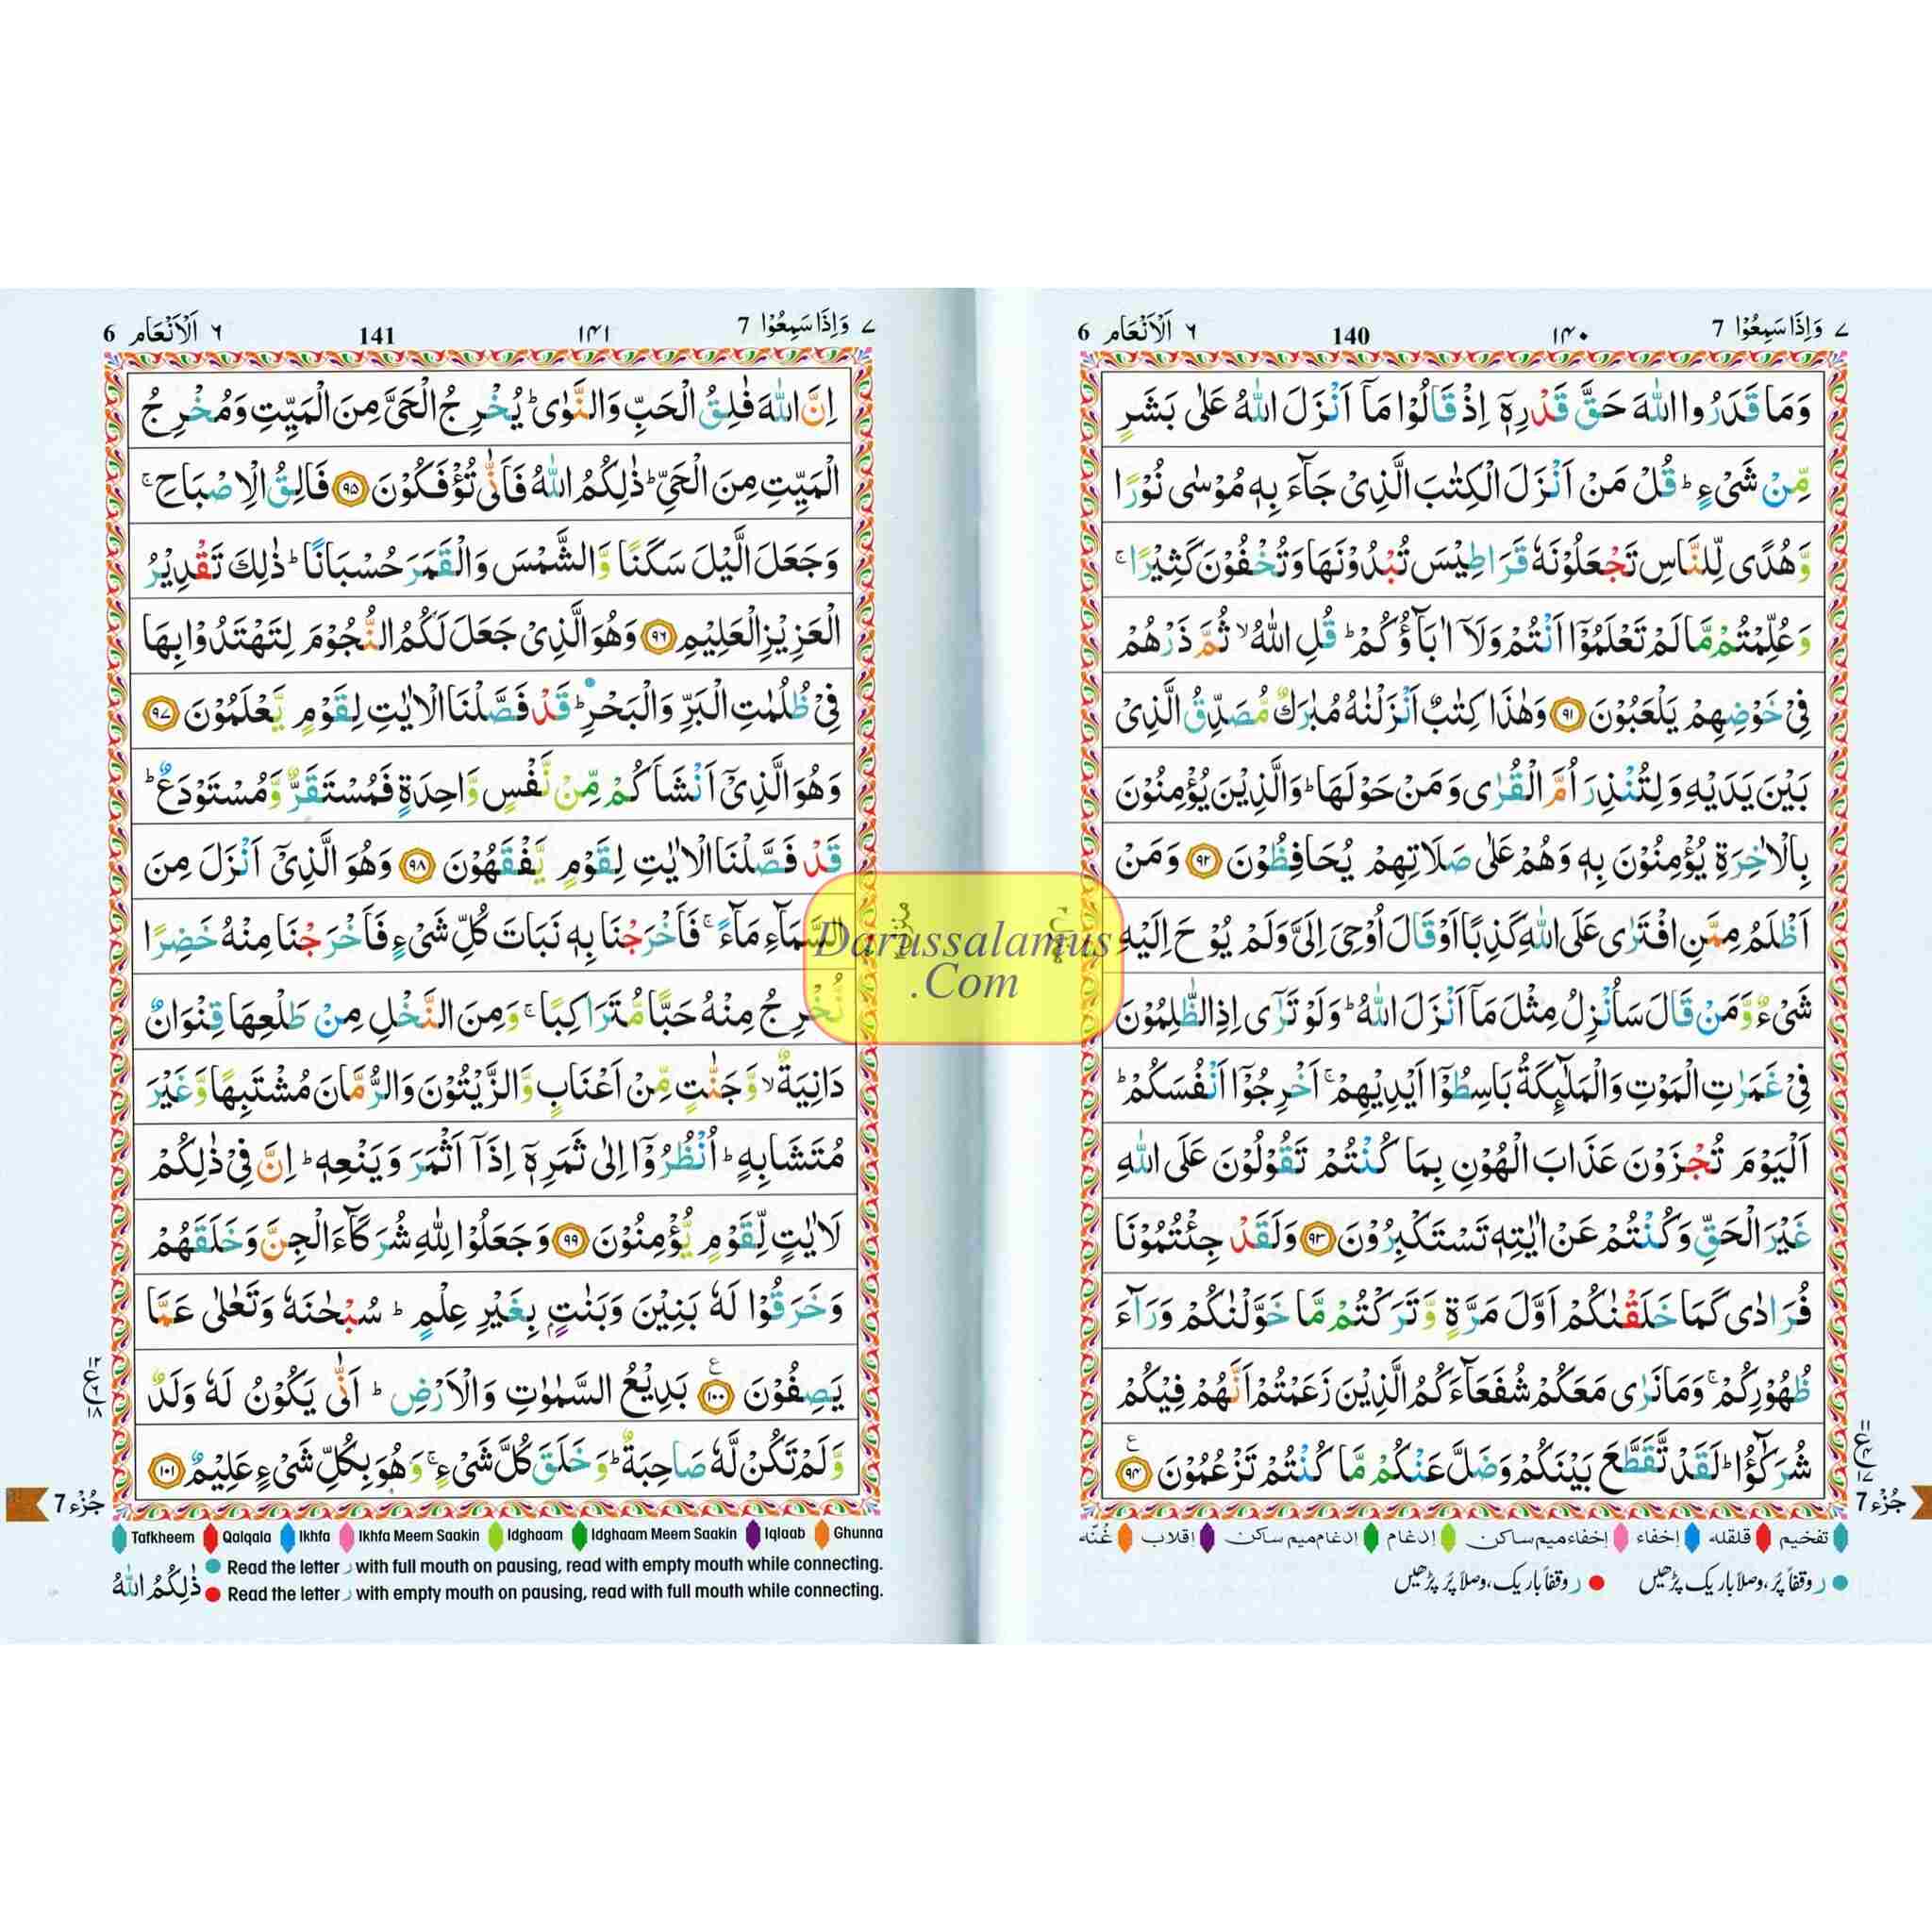 ٧ وَاِذَا سَمِعُوْا 7 ١٤٠ 140 ٦ اَلْاَنْعَام 6
وَمَا قَدَرُوا اللّٰهَ حَقَّ قَدْرِهٖۤ اِذْ قَالُوْا مَاۤ اَنْزَلَ اللّٰهُ عَلٰى بَشَرٍ
مِّنْ شَيْءٍ ؕ قُلْ مَنْ اَنْزَلَ الْكِتٰبَ الَّذِيْ جَآءَ بِهٖ مُوْسٰى نُوْرًا
وَّهُدًى لِّلنَّاسِ تَجْعَلُوْنَهٗ قَرَاطِيْسَ تُبْدُوْنَهَا وَتُخْفُوْنَ كَثِيْرًا ۚ
وَعُلِّمْتُمْ مَّا لَمْ تَعْلَمُوْۤا اَنْتُمْ وَلَاۤ اٰبَآؤُكُمْ ؕ قُلِ اللّٰهُ ۙ ثُمَّ ذَرْهُمْ
فِيْ خَوْضِهِمْ يَلْعَبُوْنَ ٩١ وَهٰذَا كِتٰبٌ اَنْزَلْنٰهُ مُبٰرَكٌ مُّصَدِّقُ الَّذِيْ
بَيْنَ يَدَيْهِ وَلِتُنْذِرَ اُمَّ الْقُرٰى وَمَنْ حَوْلَهَا ؕ وَالَّذِيْنَ يُؤْمِنُوْنَ
بِالْاٰخِرَةِ يُؤْمِنُوْنَ بِهٖ وَهُمْ عَلٰى صَلَاتِهِمْ يُحَافِظُوْنَ ٩٢ وَمَنْ
اَظْلَمُ مِمَّنِ افْتَرٰى عَلَى اللّٰهِ كَذِبًا اَوْ قَالَ اُوْحِيَ اِلَيَّ وَلَمْ يُوْحَ اِلَيْهِ
شَيْءٌ وَّمَنْ قَالَ سَاُنْزِلُ مِثْلَ مَاۤ اَنْزَلَ اللّٰهُ ؕ وَلَوْ تَرٰۤى اِذِ الظّٰلِمُوْنَ
فِيْ غَمَرٰتِ الْمَوْتِ وَالْمَلٰٓئِكَةُ بَاسِطُوْۤا اَيْدِيْهِمْ ۚ اَخْرِجُوْۤا اَنْفُسَكُمْ ؕ
اَلْيَوْمَ تُجْزَوْنَ عَذَابَ الْهُوْنِ بِمَا كُنْتُمْ تَقُوْلُوْنَ عَلَى اللّٰهِ
غَيْرَ الْحَقِّ وَكُنْتُمْ عَنْ اٰيٰتِهٖ تَسْتَكْبِرُوْنَ ٩٣ وَلَقَدْ جِئْتُمُوْنَا
فُرَادٰى كَمَا خَلَقْنٰكُمْ اَوَّلَ مَرَّةٍ وَّتَرَكْتُمْ مَّا خَوَّلْنٰكُمْ وَرَآءَ
ظُهُوْرِكُمْ ۚ وَمَا نَرٰى مَعَكُمْ شُفَعَآءَكُمُ الَّذِيْنَ زَعَمْتُمْ اَنَّهُمْ فِيْكُمْ
شُرَكٰٓؤُا ؕ لَقَدْ تَّقَطَّعَ بَيْنَكُمْ وَضَلَّ عَنْكُمْ مَّا كُنْتُمْ تَزْعُمُوْنَ ٩٤
١١ ع ٤ ١٧
جُزْء 7
تفخیم قلقلہ إخفاء إخفاء میم ساکن إدغام إدغام میم ساکن إقلاب غُنّہ
ر وقفاً پُر، وصلاً باریک پڑھیں ر وقفاً باریک، وصلاً پُر پڑھیں
٧ وَاِذَا سَمِعُوْا 7 ١٤١ 141 ٦ اَلْاَنْعَام 6
اِنَّ اللّٰهَ فٰلِقُ الْحَبِّ وَالنَّوٰى ؕ يُخْرِجُ الْحَيَّ مِنَ الْمَيِّتِ وَمُخْرِجُ
الْمَيِّتِ مِنَ الْحَيِّ ؕ ذٰلِكُمُ اللّٰهُ فَاَنّٰى تُؤْفَكُوْنَ ٩٥ فَالِقُ الْاِصْبَاحِ ۚ
وَجَعَلَ الَّيْلَ سَكَنًا وَّالشَّمْسَ وَالْقَمَرَ حُسْبَانًا ؕ ذٰلِكَ تَقْدِيْرُ
الْعَزِيْزِ الْعَلِيْمِ ٩٦ وَهُوَ الَّذِيْ جَعَلَ لَكُمُ النُّجُوْمَ لِتَهْتَدُوْا بِهَا
فِيْ ظُلُمٰتِ الْبَرِّ وَالْبَحْرِ ؕ قَدْ فَصَّلْنَا الْاٰيٰتِ لِقَوْمٍ يَّعْلَمُوْنَ ٩٧
وَهُوَ الَّذِيْۤ اَنْشَاَكُمْ مِّنْ نَّفْسٍ وَّاحِدَةٍ فَمُسْتَقَرٌّ وَّمُسْتَوْدَعٌ ؕ
قَدْ فَصَّلْنَا الْاٰيٰتِ لِقَوْمٍ يَّفْقَهُوْنَ ٩٨ وَهُوَ الَّذِيْۤ اَنْزَلَ مِنَ
السَّمَآءِ مَآءً ۚ فَاَخْرَجْنَا بِهٖ نَبَاتَ كُلِّ شَيْءٍ فَاَخْرَجْنَا مِنْهُ خَضِرًا
نُّخْرِجُ مِنْهُ حَبًّا مُّتَرَاكِبًا ۚ وَمِنَ النَّخْلِ مِنْ طَلْعِهَا قِنْوَانٌ
دَانِيَةٌ ۙ وَّجَنّٰتٍ مِّنْ اَعْنَابٍ وَّالزَّيْتُوْنَ وَالرُّمَّانَ مُشْتَبِهًا وَّغَيْرَ
مُتَشَابِهٍ ؕ اُنْظُرُوْۤا اِلٰى ثَمَرِهٖۤ اِذَاۤ اَثْمَرَ وَيَنْعِهٖ ؕ اِنَّ فِيْ ذٰلِكُمْ
لَاٰيٰتٍ لِّقَوْمٍ يُّؤْمِنُوْنَ ٩٩ وَجَعَلُوْا لِلّٰهِ شُرَكَآءَ الْجِنَّ وَخَلَقَهُمْ
وَخَرَقُوْا لَهٗ بَنِيْنَ وَبَنٰتٍۭ بِغَيْرِ عِلْمٍ ؕ سُبْحٰنَهٗ وَتَعٰلٰى عَمَّا
يَصِفُوْنَ ١٠٠ بَدِيْعُ السَّمٰوٰتِ وَالْاَرْضِ ؕ اَنّٰى يَكُوْنُ لَهٗ وَلَدٌ
وَّلَمْ تَكُنْ لَّهٗ صَاحِبَةٌ ؕ وَخَلَقَ كُلَّ شَيْءٍ ۚ وَهُوَ بِكُلِّ شَيْءٍ عَلِيْمٌ ١٠١
١٢ ع ٦ ١٨
جُزْء 7
Tafkheem Qalqala Ikhfa Ikhfa Meem Saakin Idghaam Idghaam Meem Saakin Iqlaab Ghunna
Read the letter ر with full mouth on pausing, read with empty mouth while connecting.
Read the letter ر with empty mouth on pausing, read with full mouth while connecting.
ذٰلِكُمُ اللّٰهُ
Darussalamus
.Com